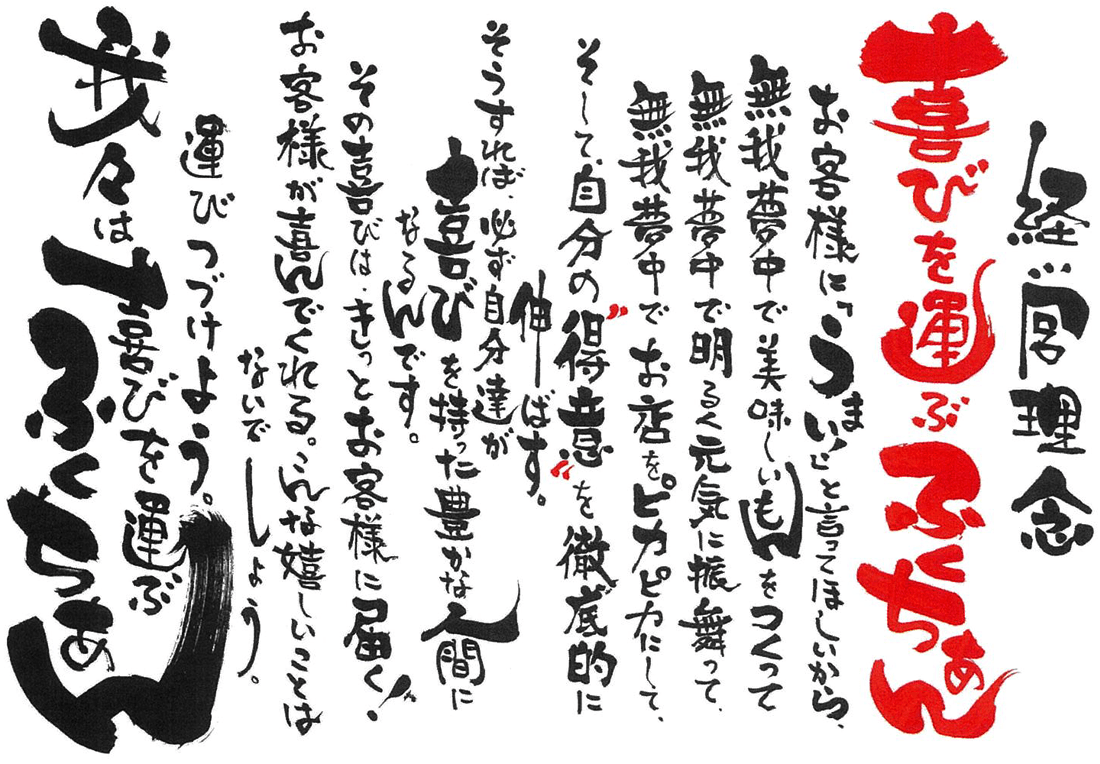 経営理念
喜びを運ぶふくちぁん
お客様に「うまい!」と言ってほしいから、
無我夢中で美味しいもんをつくって
無我夢中で明るく元気に振舞って、
無我夢中でお店をピカピカにして、
そして、自分の”得意“を徹底的に
伸ばす。
そうすれば、必ず自分達が
喜びを持った豊かな人間に
なるんです。
その喜びは、きっとお客様に届く!
お客様が喜んでくれる。こんな嬉しいことは
ないでしょう。
運びつづけよう。
我々は喜びを運ぶ
ふくちぁん